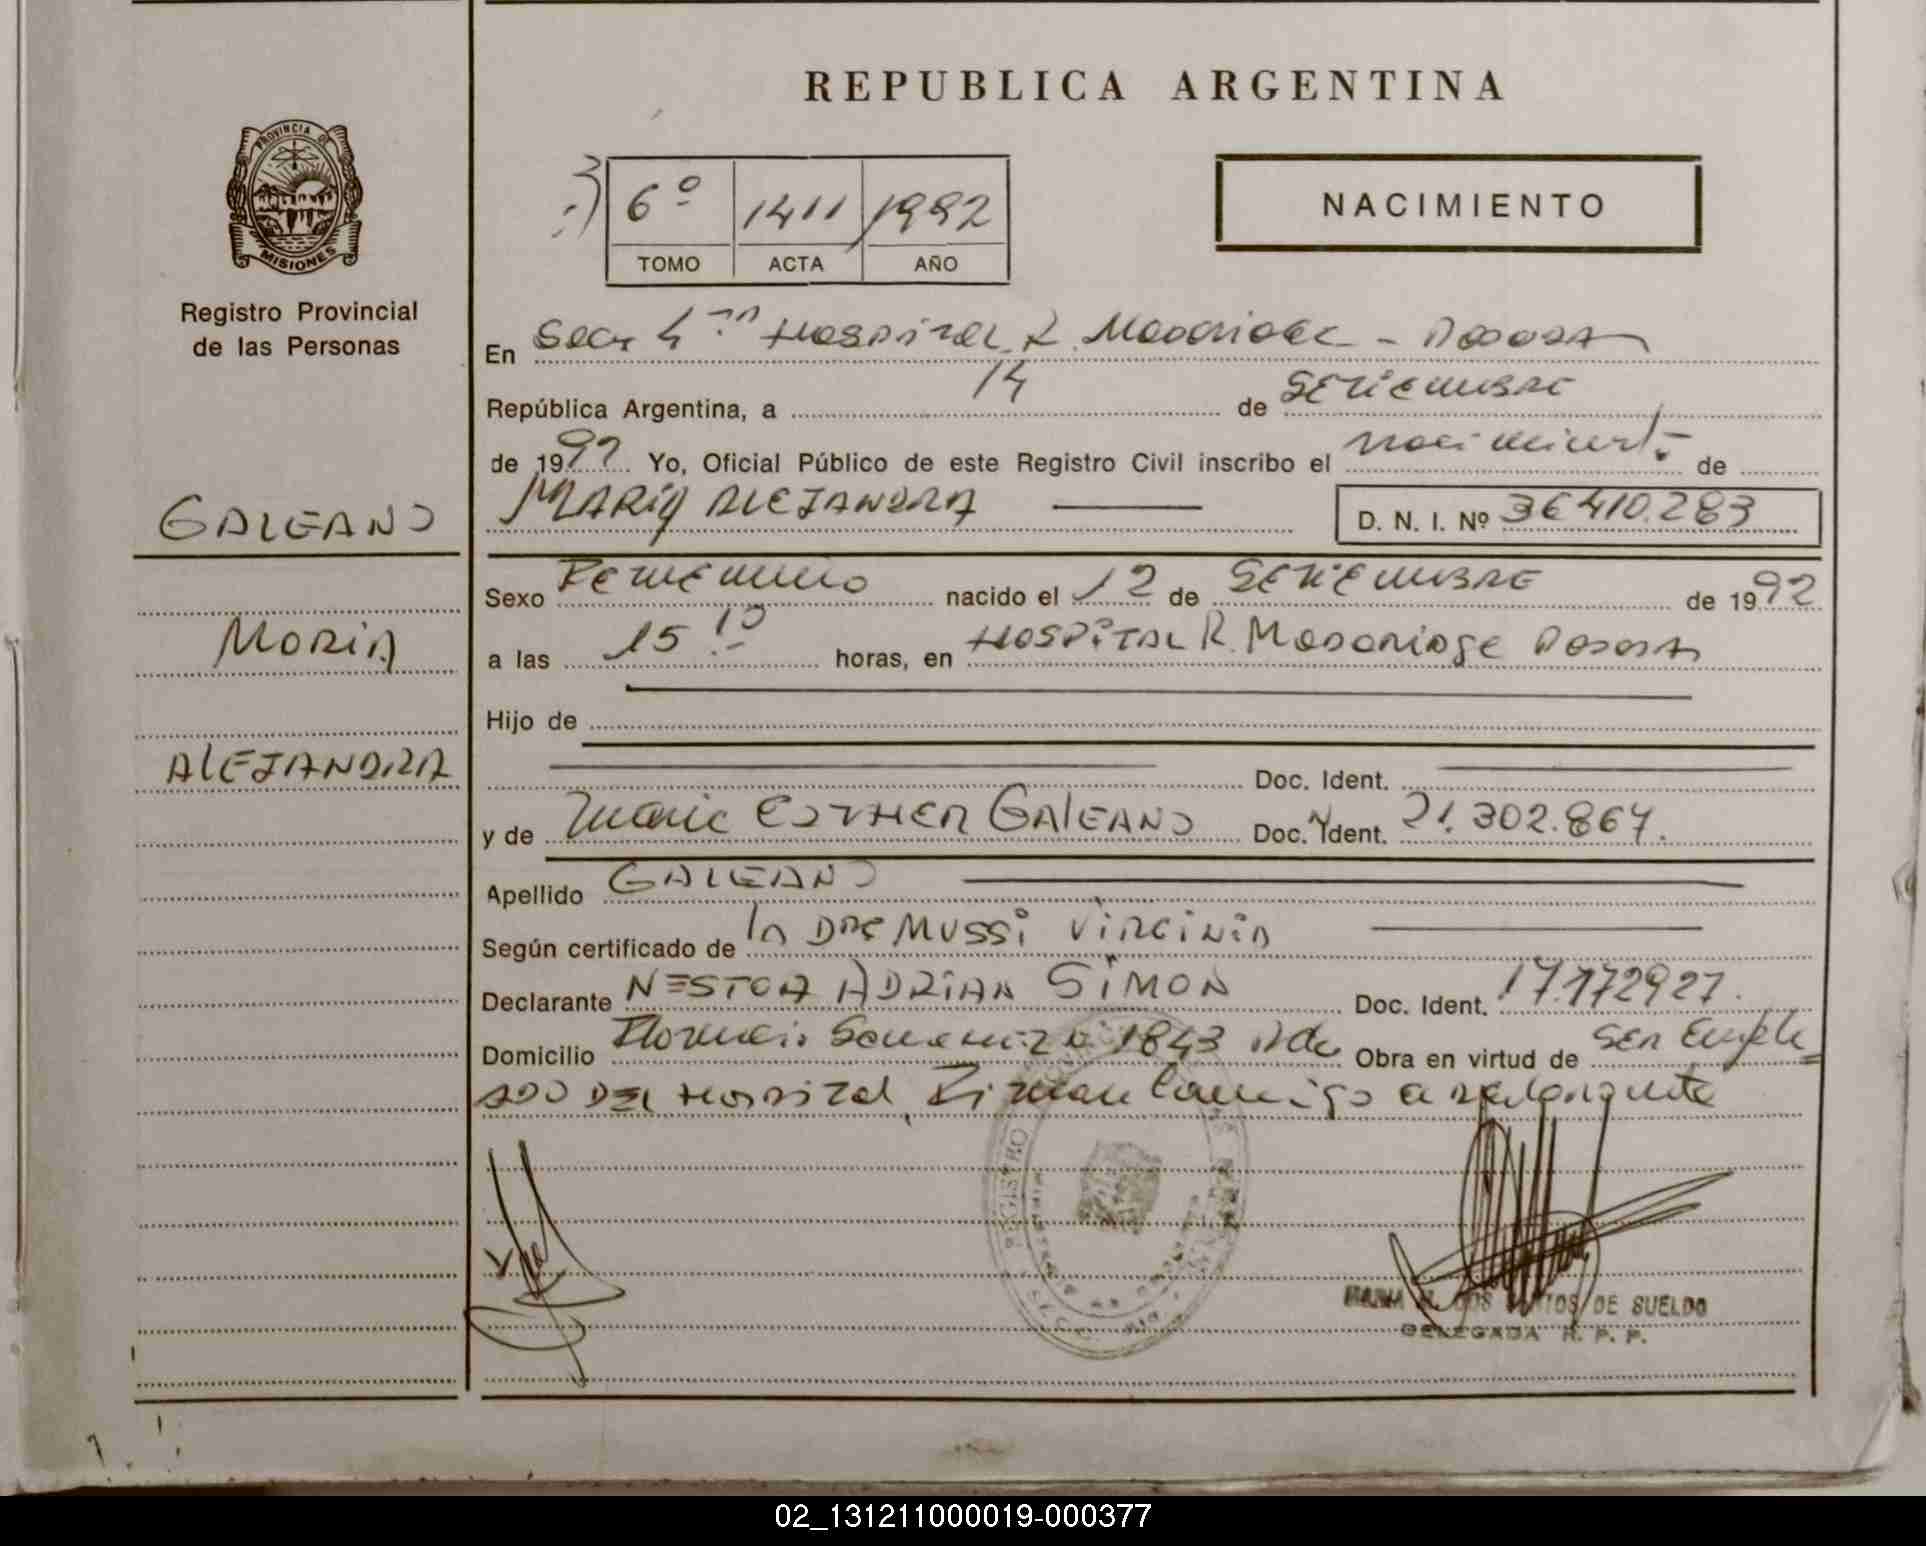 REPUBLICA ARGENTINA
PROVINCIA DE
MISIONES
Registro Provincial
de las Personas
6º 1411 1992
TOMO ACTA AÑO
NACIMIENTO
En Secc 4ta Hospital R. Madariaga - Posadas
República Argentina, a 14 de SETIEMBRE
de 1992 Yo, Oficial Público de este Registro Civil inscribo el nacimiento de
MARIA ALEJANDRA D. N. I. Nº 36410.283
GALEANO
Sexo FEMENINO nacido el 12 de SETIEMBRE de 1992
MARIA
a las 15 10 horas, en HOSPITAL R. Madariaga Posadas
Hijo de
ALEJANDRA
Doc. Ident.
y de Maria ESTHER GALEANO Doc. Ident. 21.302.867.
Apellido GALEANO
Según certificado de la DRA MUSSI VIRGINIA
Declarante NESTOR ADRIAN SIMON Doc. Ident. 17.172927.
Domicilio Florencio 1843 Obra en virtud de SER Emple
ADO DEL Hospital, Firman Conmigo
REGISTRO
MARIA DOS SANTOS DE SUELDO
DELEGADA R. P. P.
02_131211000019-000377